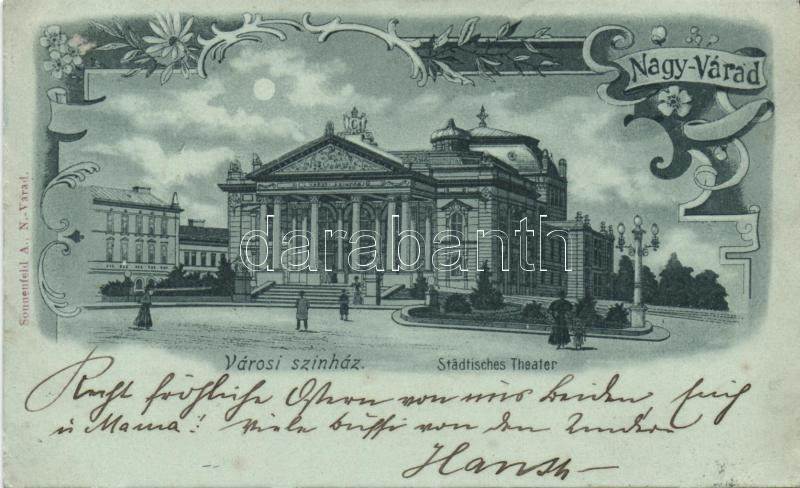 Nagy-Várad
darabanth.com
Sonnenfeld A., N.-Várad.
Városi szinház.
Städtisches Theater
Recht fröhliche Ostern von uns beiden Euch
u Mama! Viele Bussi von den
Hansl